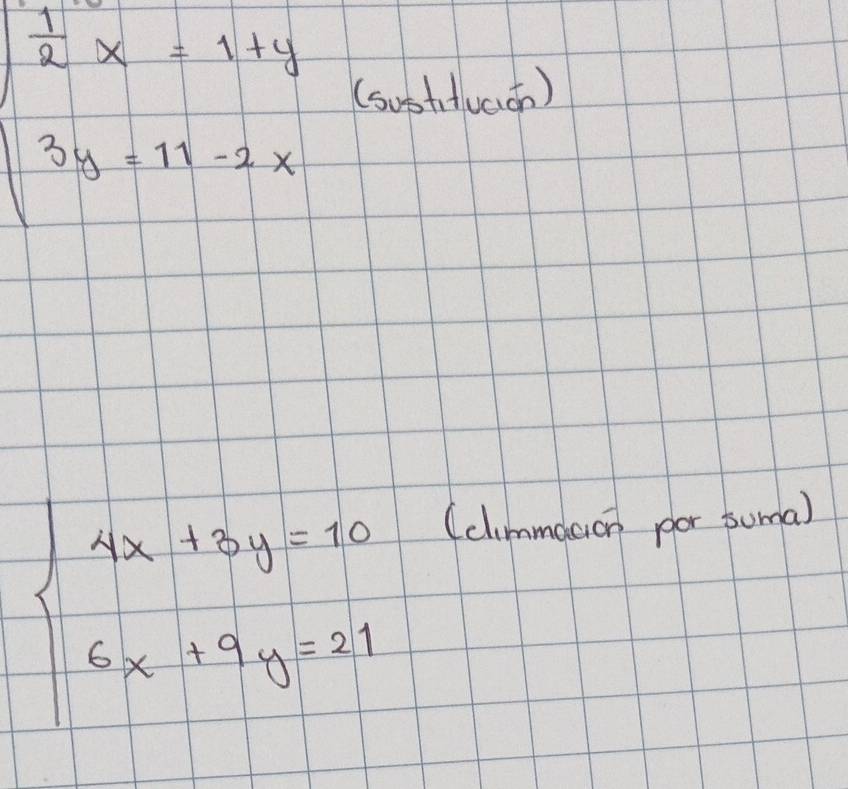 1/2 x = 1 + y
(sustitución)
3y = 11 - 2x
4x + 3y = 10 (eliminación por suma)
6x + 9y = 21